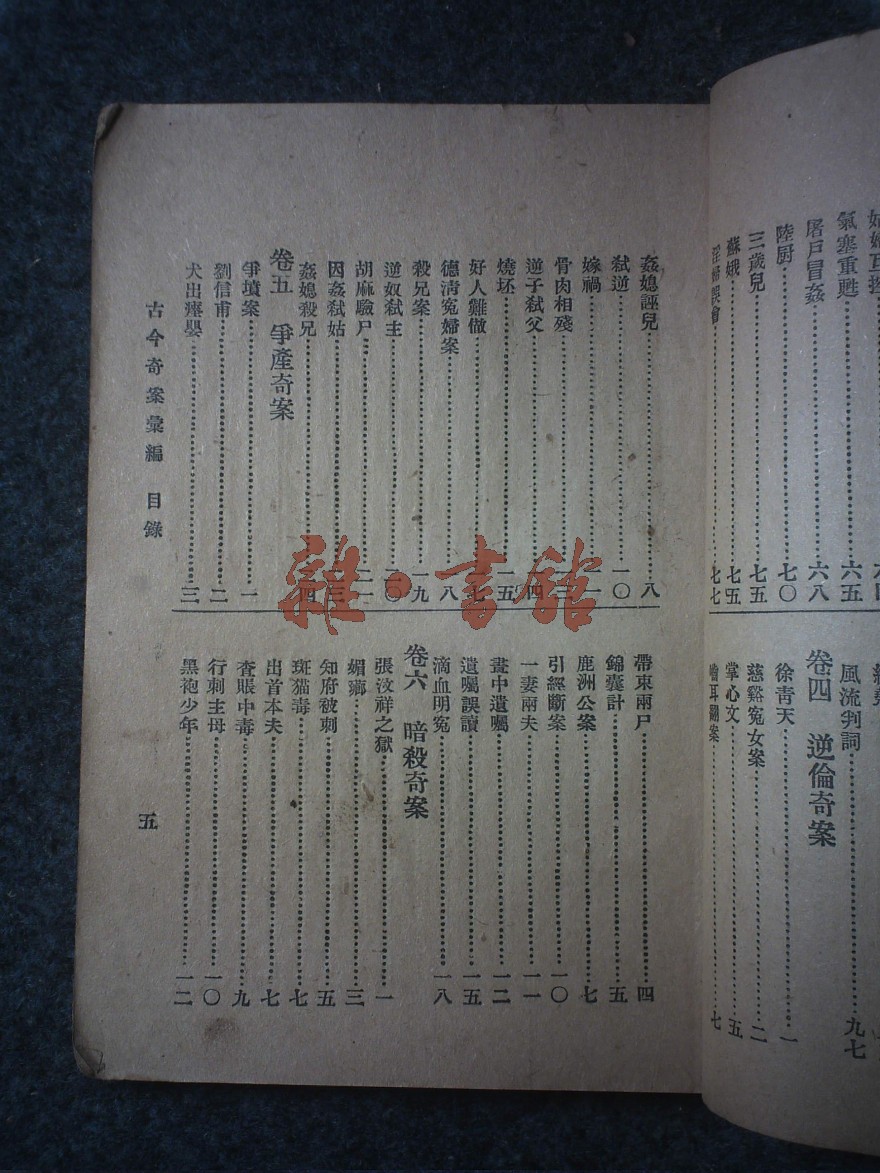 氣塞重甦……六五
屠戶冒姦……六八
陸厨……七〇
三歲兒……七五
蘇娥……七五
淫婦誤會……七七
風流判詞……九七
卷四 逆倫奇案
徐青天……一
慈谿冤女案……二
掌心文……五
耳翻案……七
姦媳誣兒……八
弒逆……一〇
嫁禍……一一
骨肉相殘……
逆子弒父……一四
燒坯……一五
好人難做……一七
德清冤婦案……一八
殺兄案……一九
逆奴弒主……二〇
胡麻驗尸……二一
因姦弒姑……二三
姦媳殺兄……二四
卷五 爭產奇案
爭墳案……一
劉信甫……二
犬出瘞嬰……三
帶束兩尸……四
錦囊計……五
鹿洲公案……七
引經斷案……一〇
一妻兩夫……一一
畫中遺囑……一二
遺囑誤讀……一五
滴血明冤……一八
卷六 暗殺奇案
張汶祥之獄……一
媚藥……三
知府被刺……五
斑猫毒……七
出首本夫……七
查賬中毒……九
行刺主母……一〇
黑袍少年……一二
古今奇案彙編 目錄
五
雜·書館